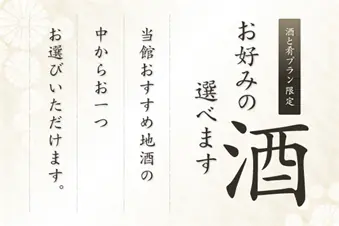 酒と肴プラン限定
お好みの
選べます
酒
当館おすすめ地酒の
中からお一つ
お選びいただけます。